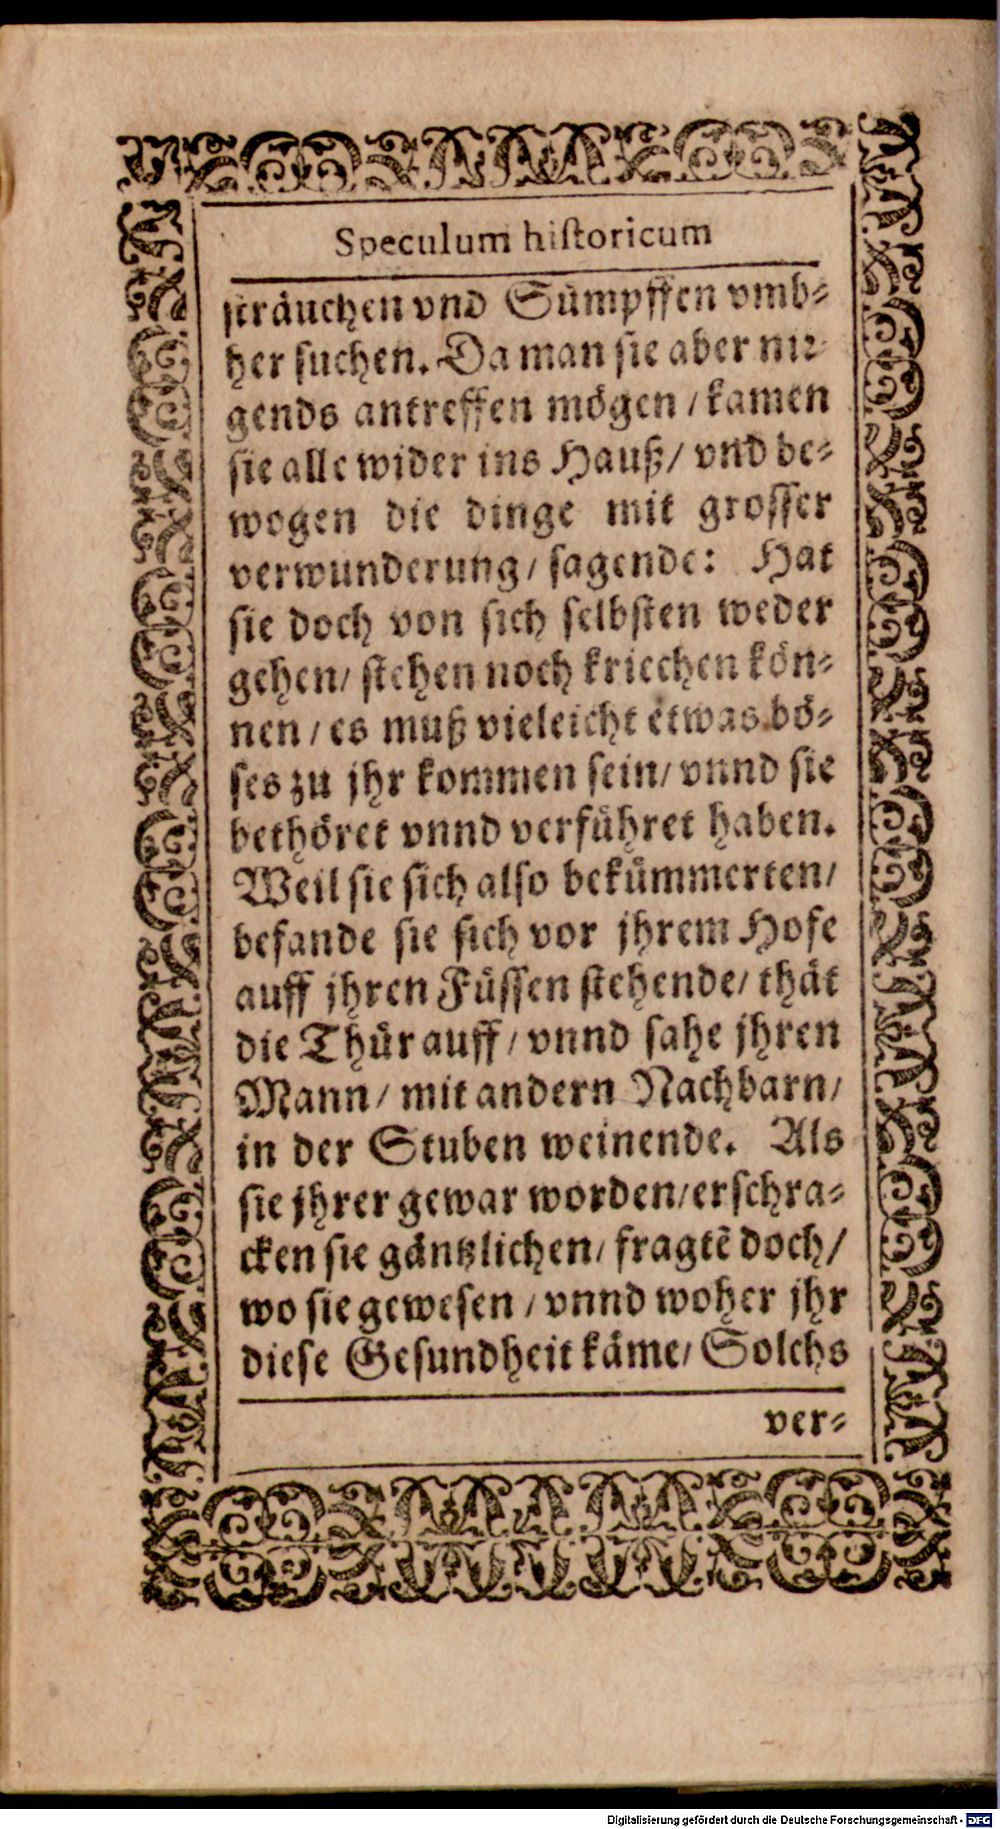 Speculum hiſtoricum
ſträuchen vnd Sümpffen vmb-
her ſuchen. Da man ſie aber nir-
gends antreffen mögen / kamen
ſie alle wider ins Hauß / vnd be-
wogen die dinge mit groſſer
verwunderung / ſagende: Hat
ſie doch von ſich ſelbſten weder
gehen / ſtehen noch kriechen kön-
nen / es muß vieleicht etwas bö-
ſes zu jhr kommen ſein / vnnd ſie
bethöret vnnd verführet haben.
Weil ſie ſich alſo bekümmerten /
befande ſie ſich vor jhrem Hofe
auff jhren Füſſen ſtehende / thät
die Thür auff / vnnd ſahe jhren
Mann / mit andern Nachbarn /
in der Stuben weinende. Als
ſie jhrer gewar worden / erſchra-
cken ſie gäntzlichen / fragtẽ doch /
wo ſie geweſen / vnnd woher jhr
dieſe Geſundheit käme / Solchs
ver-
Digitalisierung gefördert durch die Deutsche Forschungsgemeinschaft - DFG